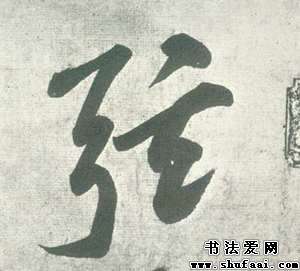 弦
书法爱网
www.shufaai.com